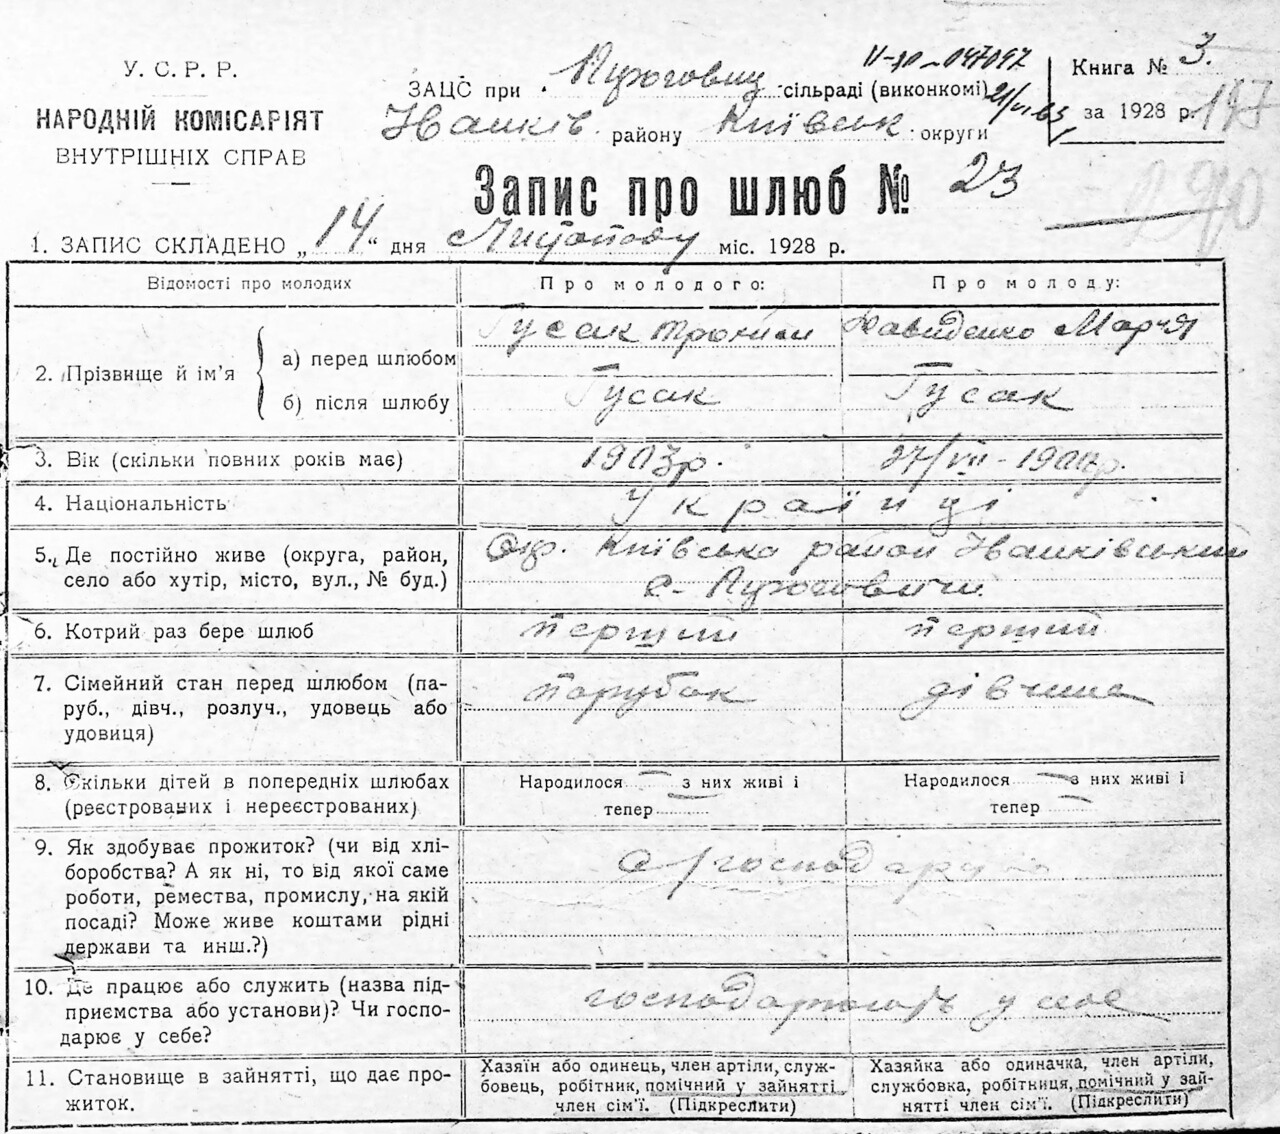 У. С. Р. Р.
НАРОДНІЙ КОМІСАРІЯТ
ВНУТРІШНІХ СПРАВ
ІІ-30-047097
21/VI 63
ЗАЦС при Пухговиц сільраді (виконкомі)
Іванків району Київськ округи
Книга № 3.
за 1928 р. 147
Запис про шлюб № 23
1. ЗАПИС СКЛАДЕНО „14“ дня Листопаду міс. 1928 р.
Відомості про молодих
Про молодого:
Про молоду:
2. Прізвище й ім’я
а) перед шлюбом
Гусак
Давиденко Марія
б) після шлюбу
Гусак
Гусак
3. Вік (скільки повних років має)
1903р.
27/VII - р.
4. Національність
Українці
5. Де постійно живе (округа, район,
село або хутір, місто, вул., № буд.)
Окр. Київська район Іванківський
с. Пухговичи
6. Котрий раз бере шлюб
перший
перший
7. Сімейний стан перед шлюбом (па-
руб., дівч., розлуч., удовець або
удовиця)
парубок
дівчина
8. Скільки дітей в попередніх шлюбах
(реєстрованих і нереєстрованих)
Народилося — з них живі і
тепер —
Народилося — з них живі і
тепер —
9. Як здобуває прожиток? (чи від хлі-
боробства? А як ні, то від якої саме
роботи, ремества, промислу, на якій
посаді? Може живе коштами рідні
держави та инш.?)
10. Де працює або служить (назва під-
приємства або установи)? Чи госпо-
дарює у себе?
господарюють у себе
11. Становище в зайнятті, що дає про-
житок.
Хазяїн або одинець, член артілі, служ-
бовець, робітник, помічний у зайнятті
член сім’ї. (Підкреслити)
Хазяйка або одиначка, член артіли,
службовка, робітниця, помічний у зай-
нятті член сім’ї. (Підкреслити)